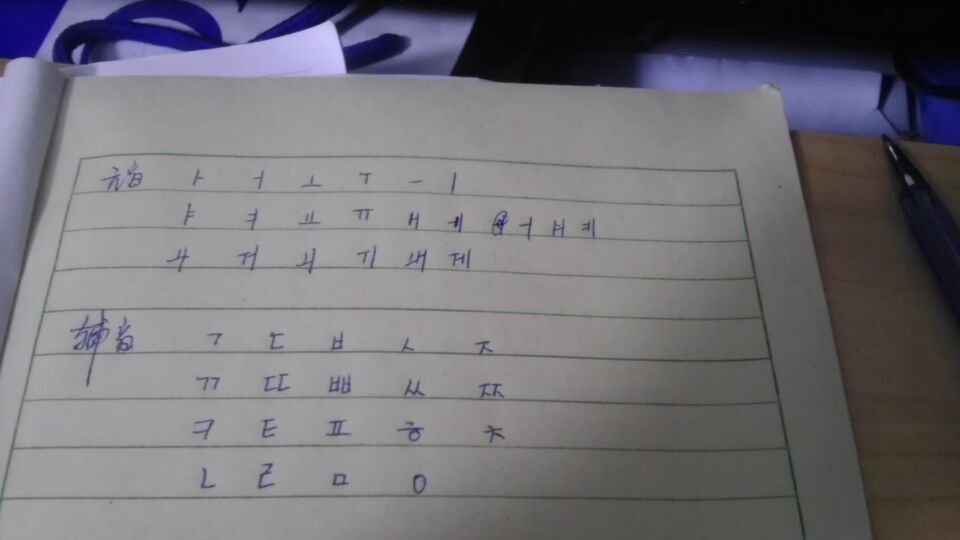 元音 ㅏ ㅓ ㅗ ㅜ ㅡ ㅣ
ㅑ ㅕ ㅛ ㅠ ㅐ ㅔ ㅒ ㅖ
ㅘ ㅝ ㅚ ㅟ ㅙ ㅞ
辅音 ㄱ ㄷ ㅂ ㅅ ㅈ
ㄲ ㄸ ㅃ ㅆ ㅉ
ㅋ ㅌ ㅍ ㅎ ㅊ
ㄴ ㄹ ㅁ ㅇ